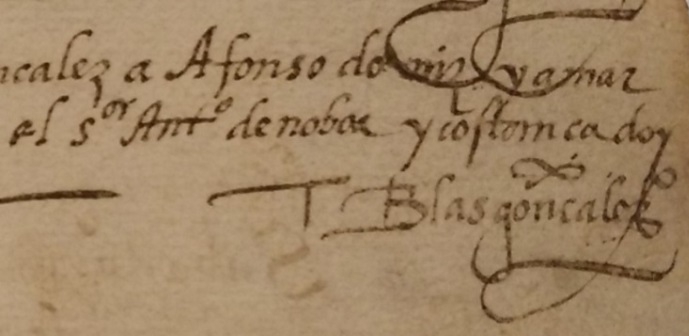 ncalez a Afonso do mīz y a mar
el s.or Ant.o de noboa y costom ca doy
T Blas goncalez